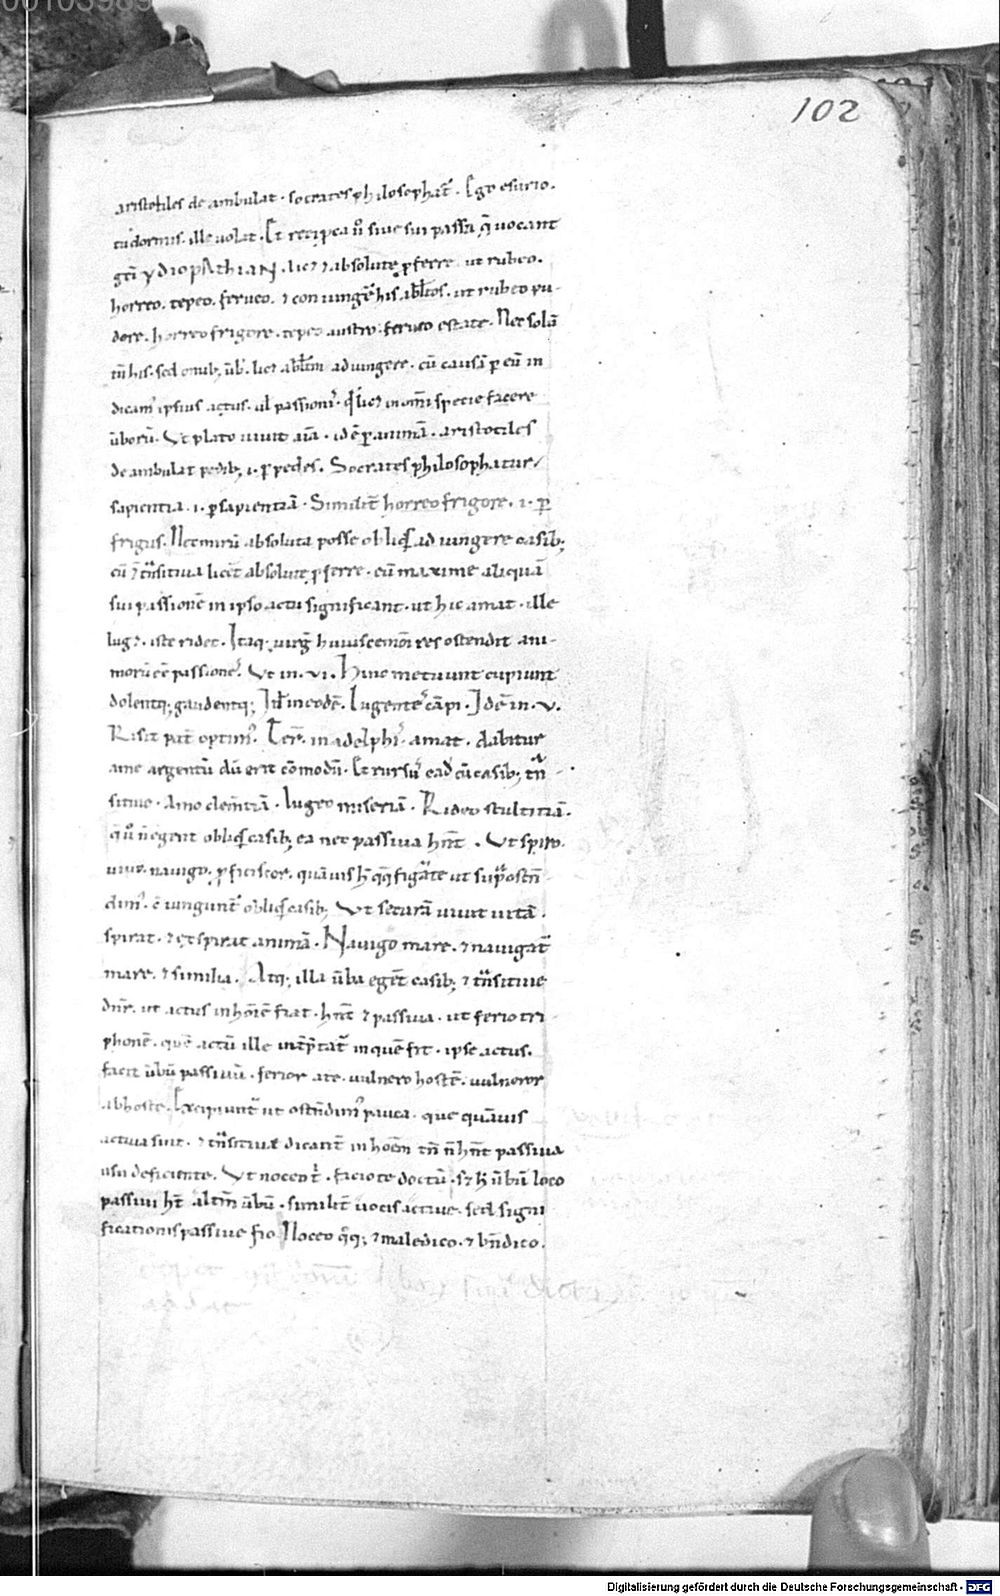 102
aristotiles de ambulat · socrates philosophat̄ · Ego esurio.
tu dormis · ille uolat · Et recipca ū siue sui passā q̄ uocant
gc̄i ydiopAthiaN · lic& absolute p̄ferre ut rubeo.
horreo. tepeo. ferueo. & coniungēt his ablt̄os. ut rubeo pu-
dore. horreo frigore. tepeo austro. ferueo estate. Nec solū
tn̄ his. sed omib; ūb'. lic& ablt̄m adiungere. cū causā p̄ eū in
dicam' ipsius actus. ul passionis. q̄ lic& in omī specie facere
ūborū. Ut plato uiuit aīa · id ē p̄ animā. aristotiles
de ambulat pedib; ·i· p̄ pedes. Socrates philosophatur
sapientia ·i· p̄ sapientiā. Similit̄ horreo frigore ·i· p̄
frigus. Nec mirū absoluta posse obliq̄s adiungere casib;
cū & t̄nsitiua licēt absolute p̄ferre. cū maxime aliquā
sui passionē in ipso actu significant. ut hic amat. ille
lug&. iste ridet. Itaq; uirḡ huiuscemōi res ostendit ani-
morū eē passiones. Ut in ·vi· Hinc metuunt cupiunt
dolentq; gaudentq; Itē in eodē. Lugentes cāpi. Idē in ·v·
Risit pat̄ optim'. Ter̄. in adelphis. amat. dabitur
a me argentū dū erit cōmodū. Et rursus eadē cū casib; t̄n
sitiue. Amo clem̄tiā. Lugeo miseriā. Rideo stultitiā.
q̄ ū n̄ egent obliq̄s casib; ea nec passiua hn̄t. Ut spiro.
uiuo. nauigo. p̄ficiscor. quāuis h̄ q̄q; figurate ut supra ostn̄
dim'. c̄iungunt̄ obliq̄s casib; Ut securā uiuit uitā.
spirat. & exspirat animā. Nauigo mare. & nauigat̄
mare. & similia. Atq; illa ūba egēt casib; & t̄nsitiue
dn̄r. ut actus in hōīe fiat. hn̄t & passiua. ut ferio tri
phonē. quē actū ille int̄p̄tat̄ in quē fit. ipse actus.
facit ūbū passiuū. ferior a te. uulnero hostē. uulneror
ab hoste. Excipiunt̄ ut ostn̄dim' pauca. que quāuis
actiua sint. & t̄nsitiue dicant̄ in hoēm tn̄ n̄ hn̄t passiua
usu deficiente. Ut noceo t'. facio te doctū. s& h̄ ūbū loco
passiui h̄t alt̄m ūbū. similit̄ uocis actiue. sed signi
ficationis passiue fio Noceo q̄q; & maledico. & bn̄dico.
Digitalisierung gefördert durch die Deutsche Forschungsgemeinschaft - DFG